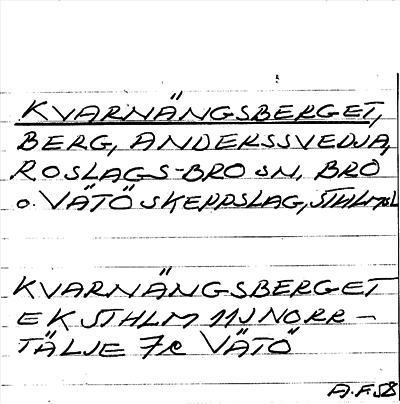 KVARNÄNGSBERGET,
BERG, ANDERSSVEDJA,
ROSLAGS-BRO SN, BRO
O. VÄTÖ SKEPPSLAG, STHLMS L
KVARNÄNGSBERGET
EK STHLM 11J NORR-
TÄLJE 7c VÄTÖ
A.F. 58